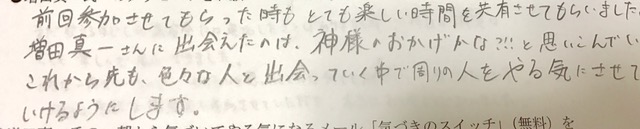 前回参加させてもらった時もとても楽しい時間を共有させてもらいました
増田真一さんに出会えたのは、神様のおかげかな?!!と思いこんでい
これから先も、色々な人と出会っていく中で周りの人をやる気にさせて
いけるようにします。
メール「気づきのスイッチ」(無料)を